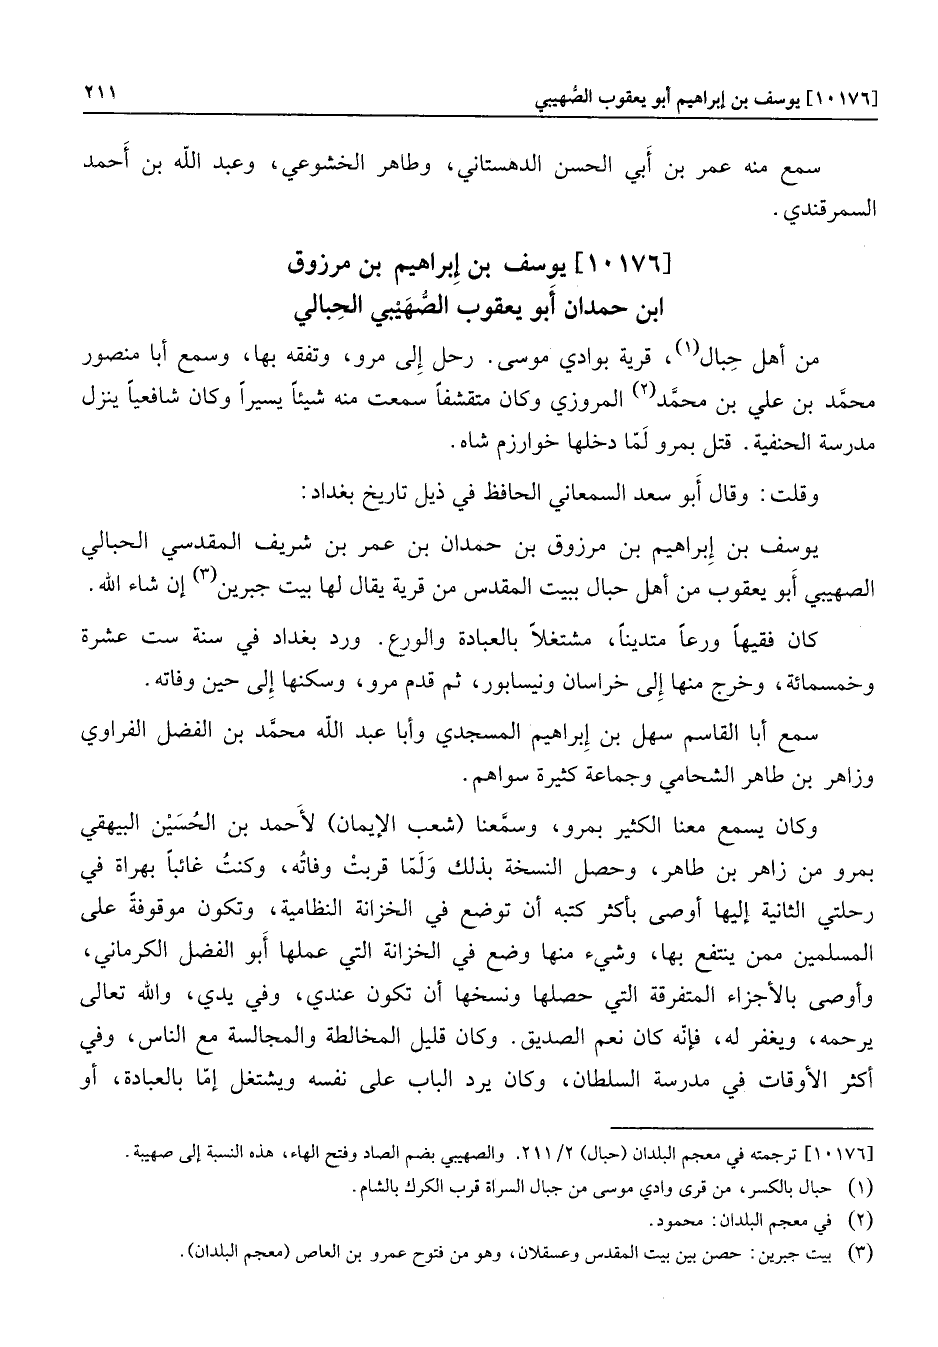 [١٠١٧٦] يوسف بن إبراهيم أبو يعقوب الصُّهيبي ٢١١
سمع منه عمر بن أَبي الحسن الدهستاني، وطاهر الخشوعي، وعبد اللّه بن أَحمد
السمرقندي.
[١٠١٧٦] يوسف بن إِبراهيم بن مرزوق
ابن حمدان أَبو يعقوب الصُّهَيْبي الحِبالي
من أهل حِبال(١)، قرية بوادي موسى. رحل إِلى مرو، وتفقه بها، وسمع أبا منصور
محمَّد بن علي بن محمَّد(٢) المروزي وكان متقشفاً سمعت منه شيئاً يسيراً وكان شافعياً ينزل
مدرسة الحنفية. قتل بمرو لَمّا دخلها خوارزم شاه.
وقلت: وقال أَبو سعد السمعاني الحافظ في ذيل تاريخ بغداد:
يوسف بن إِبراهيم بن مرزوق بن حمدان بن عمر بن شريف المقدسي الحبالي
الصهيبي أَبو يعقوب من أهل حبال ببيت المقدس من قرية يقال لها بيت جبرين(٣) إن شاء الله.
كان فقيهاً ورعاً متديناً، مشتغلاً بالعبادة والورع. ورد بغداد في سنة ست عشرة
وخمسمائة، وخرج منها إِلى خراسان ونيسابور، ثم قدم مرو، وسكنها إِلى حين وفاته.
سمع أبا القاسم سهل بن إِبراهيم المسجدي وأبا عبد اللّه محمَّد بن الفضل الفراوي
وزاهر بن طاهر الشحامي وجماعة كثيرة سواهم.
وكان يسمع معنا الكثير بمرو، وسمَّعنا (شعب الإيمان) لأَحمد بن الحُسَيْن البيهقي
بمرو من زاهر بن طاهر، وحصل النسخة بذلك وَلَمّا قربتْ وفاتُه، وكنتُ غائباً بهراة في
رحلتي الثانية إليها أوصى بأكثر كتبه أن توضع في الخزانة النظامية، وتكون موقوفةً على
المسلمين ممن ينتفع بها، وشيء منها وضع في الخزانة التي عملها أَبو الفضل الكرماني،
وأوصى بالأجزاء المتفرقة التي حصلها ونسخها أن تكون عندي، وفي يدي، والله تعالى
يرحمه، ويغفر له، فإنّه كان نعم الصديق. وكان قليل المخالطة والمجالسة مع الناس، وفي
أكثر الأوقات في مدرسة السلطان، وكان يرد الباب على نفسه ويشتغل إمّا بالعبادة، أو
[١٠١٧٦] ترجمته في معجم البلدان (حبال) ٢/ ٢١١. والصهيبي بضم الصاد وفتح الهاء، هذه النسبة إلى صهيبة.
(١) حبال بالكسر، من قرى وادي موسى من جبال السراة قرب الكرك بالشام.
(٢) في معجم البلدان: محمود.
(٣) بيت جبرين: حصن بين بيت المقدس وعسقلان، وهو من فتوح عمرو بن العاص (معجم البلدان).